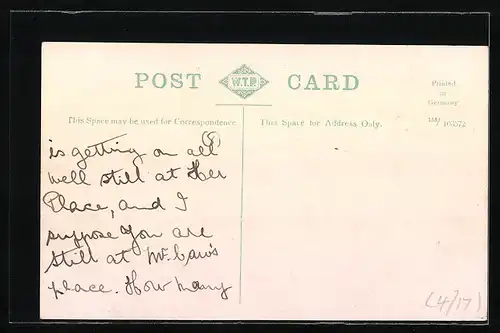 POST W.T.P. CARD
Printed
in
Germany
This Space may be used for Correspondence
This Space for Address Only.
is getting on all
well still at Her
Place, and I
suppose you are
still at Mr.
place. How many
(4/17)